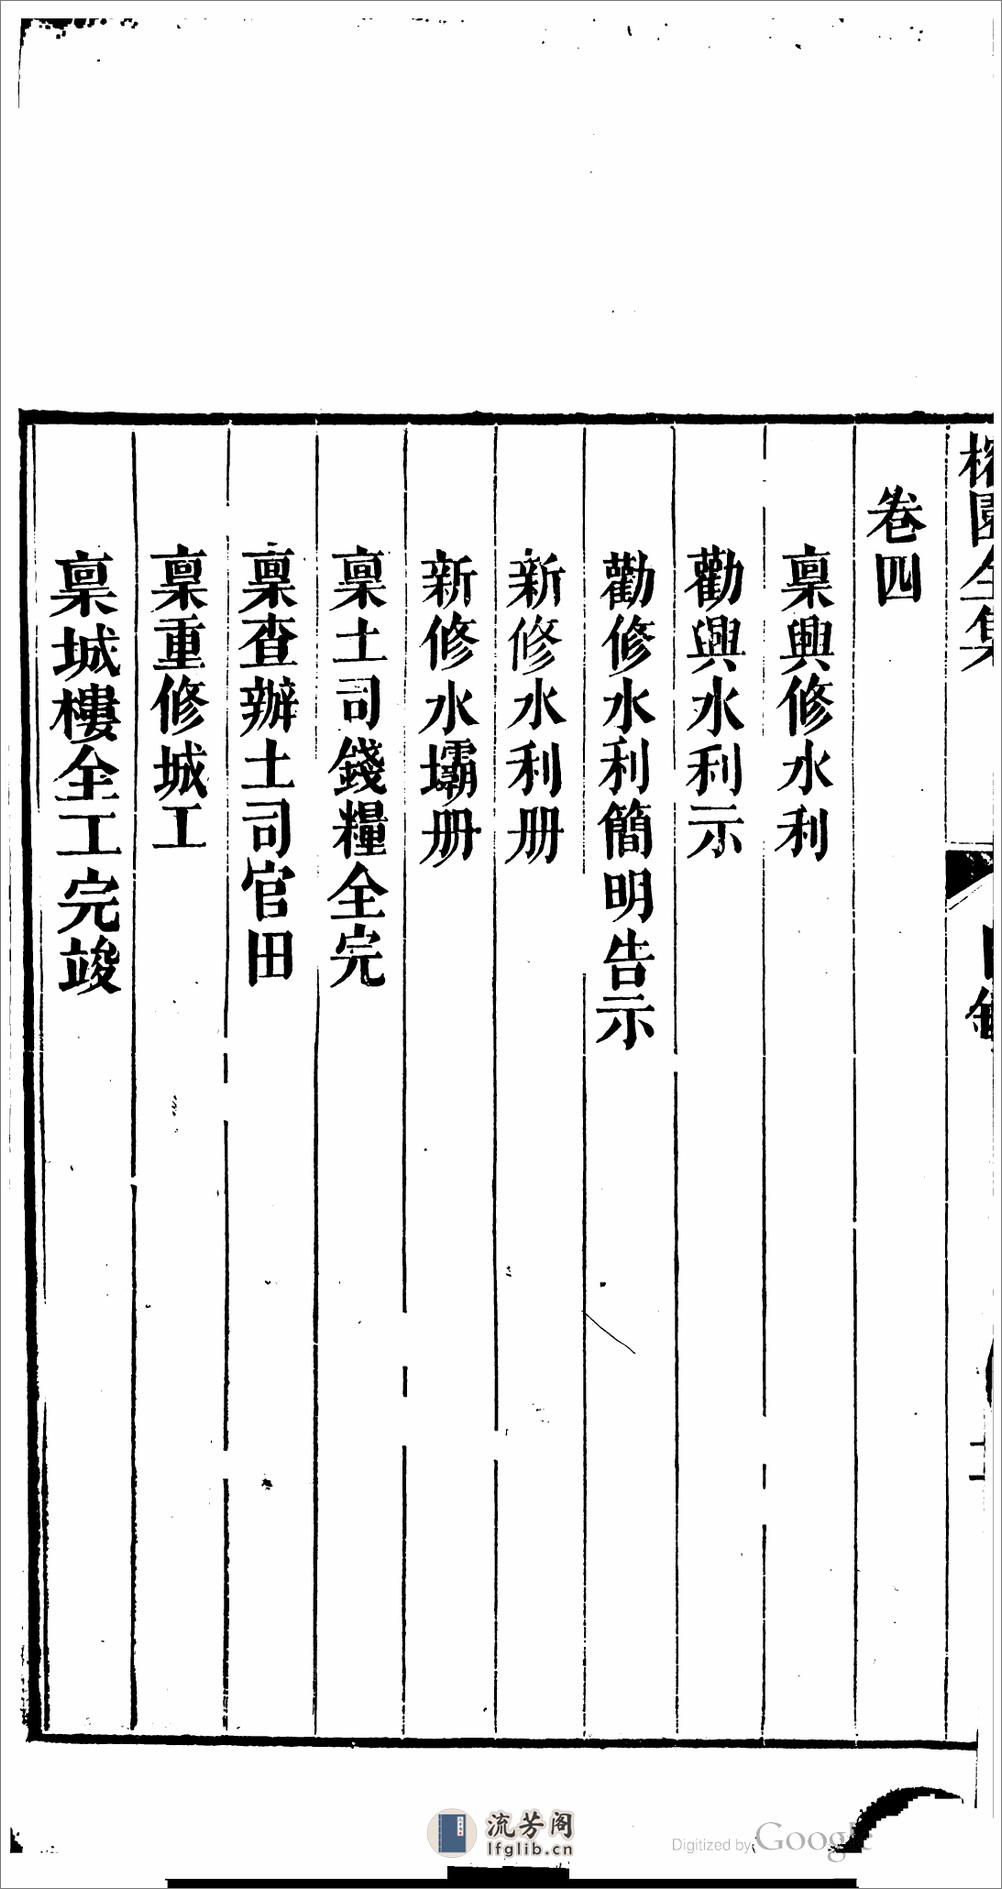 園全集
卷四
稟興修水利
勸興水利示
勸修水利簡明告示
新修水利册
新修水壩册
稟土司錢糧全完
稟查辦土司官田
稟重修城工
稟城樓全工完竣
流芳阁
lfglib.cn
Digitized by Google